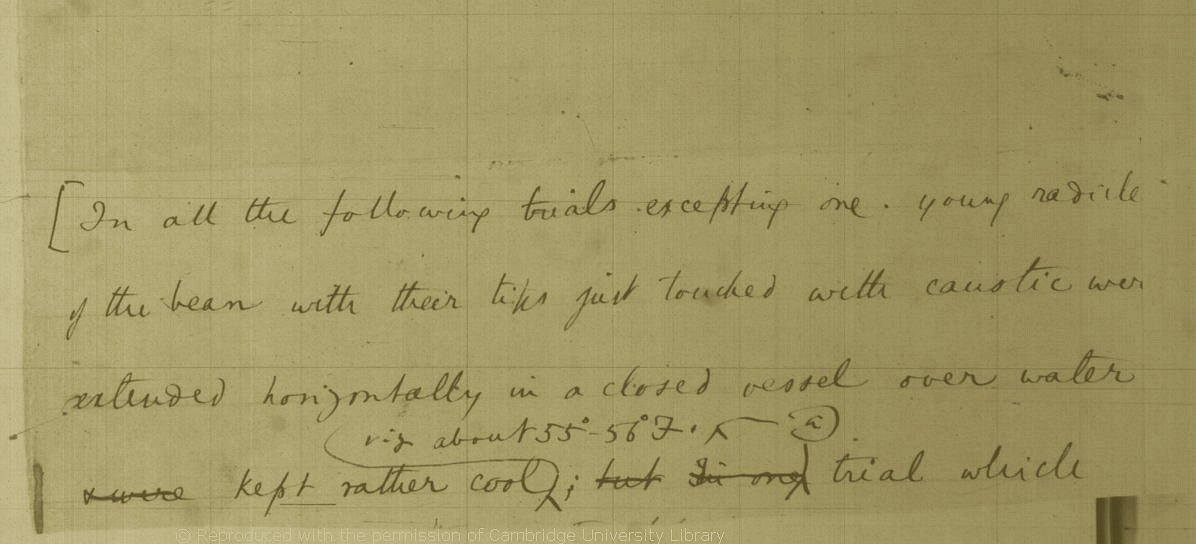 [In all the following trials excepting one. young radicle
of the bean with their tips just touched with caustic were
extended horizontally in a closed vessel over water
viz about 55°-56° F. (a)
& were kept rather cool); but In one) trial which
© Reproduced with the permission of Cambridge University Library